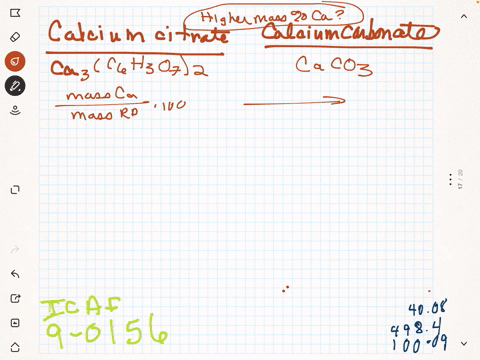 Higher mass % Ca?
Calcium citrate
Calcium Carbonate
Ca3(C6H3O7)2
CaCO3
mass Ca
mass RD · 100
ICAF
9-0156
40.08
498.4
100.09
17 / 20